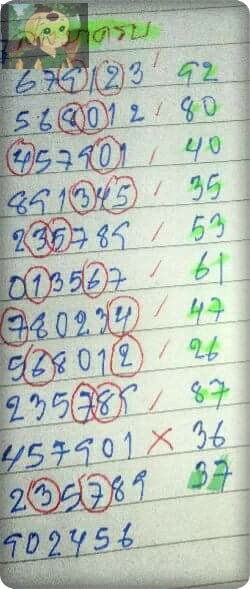 679123 92
568012 / 80
457901 / 40
891345 / 35
235789 / 53
013567 / 61
780234 / 47
568012 / 26
235789 / 87
457901 × 36
235789 37
902456